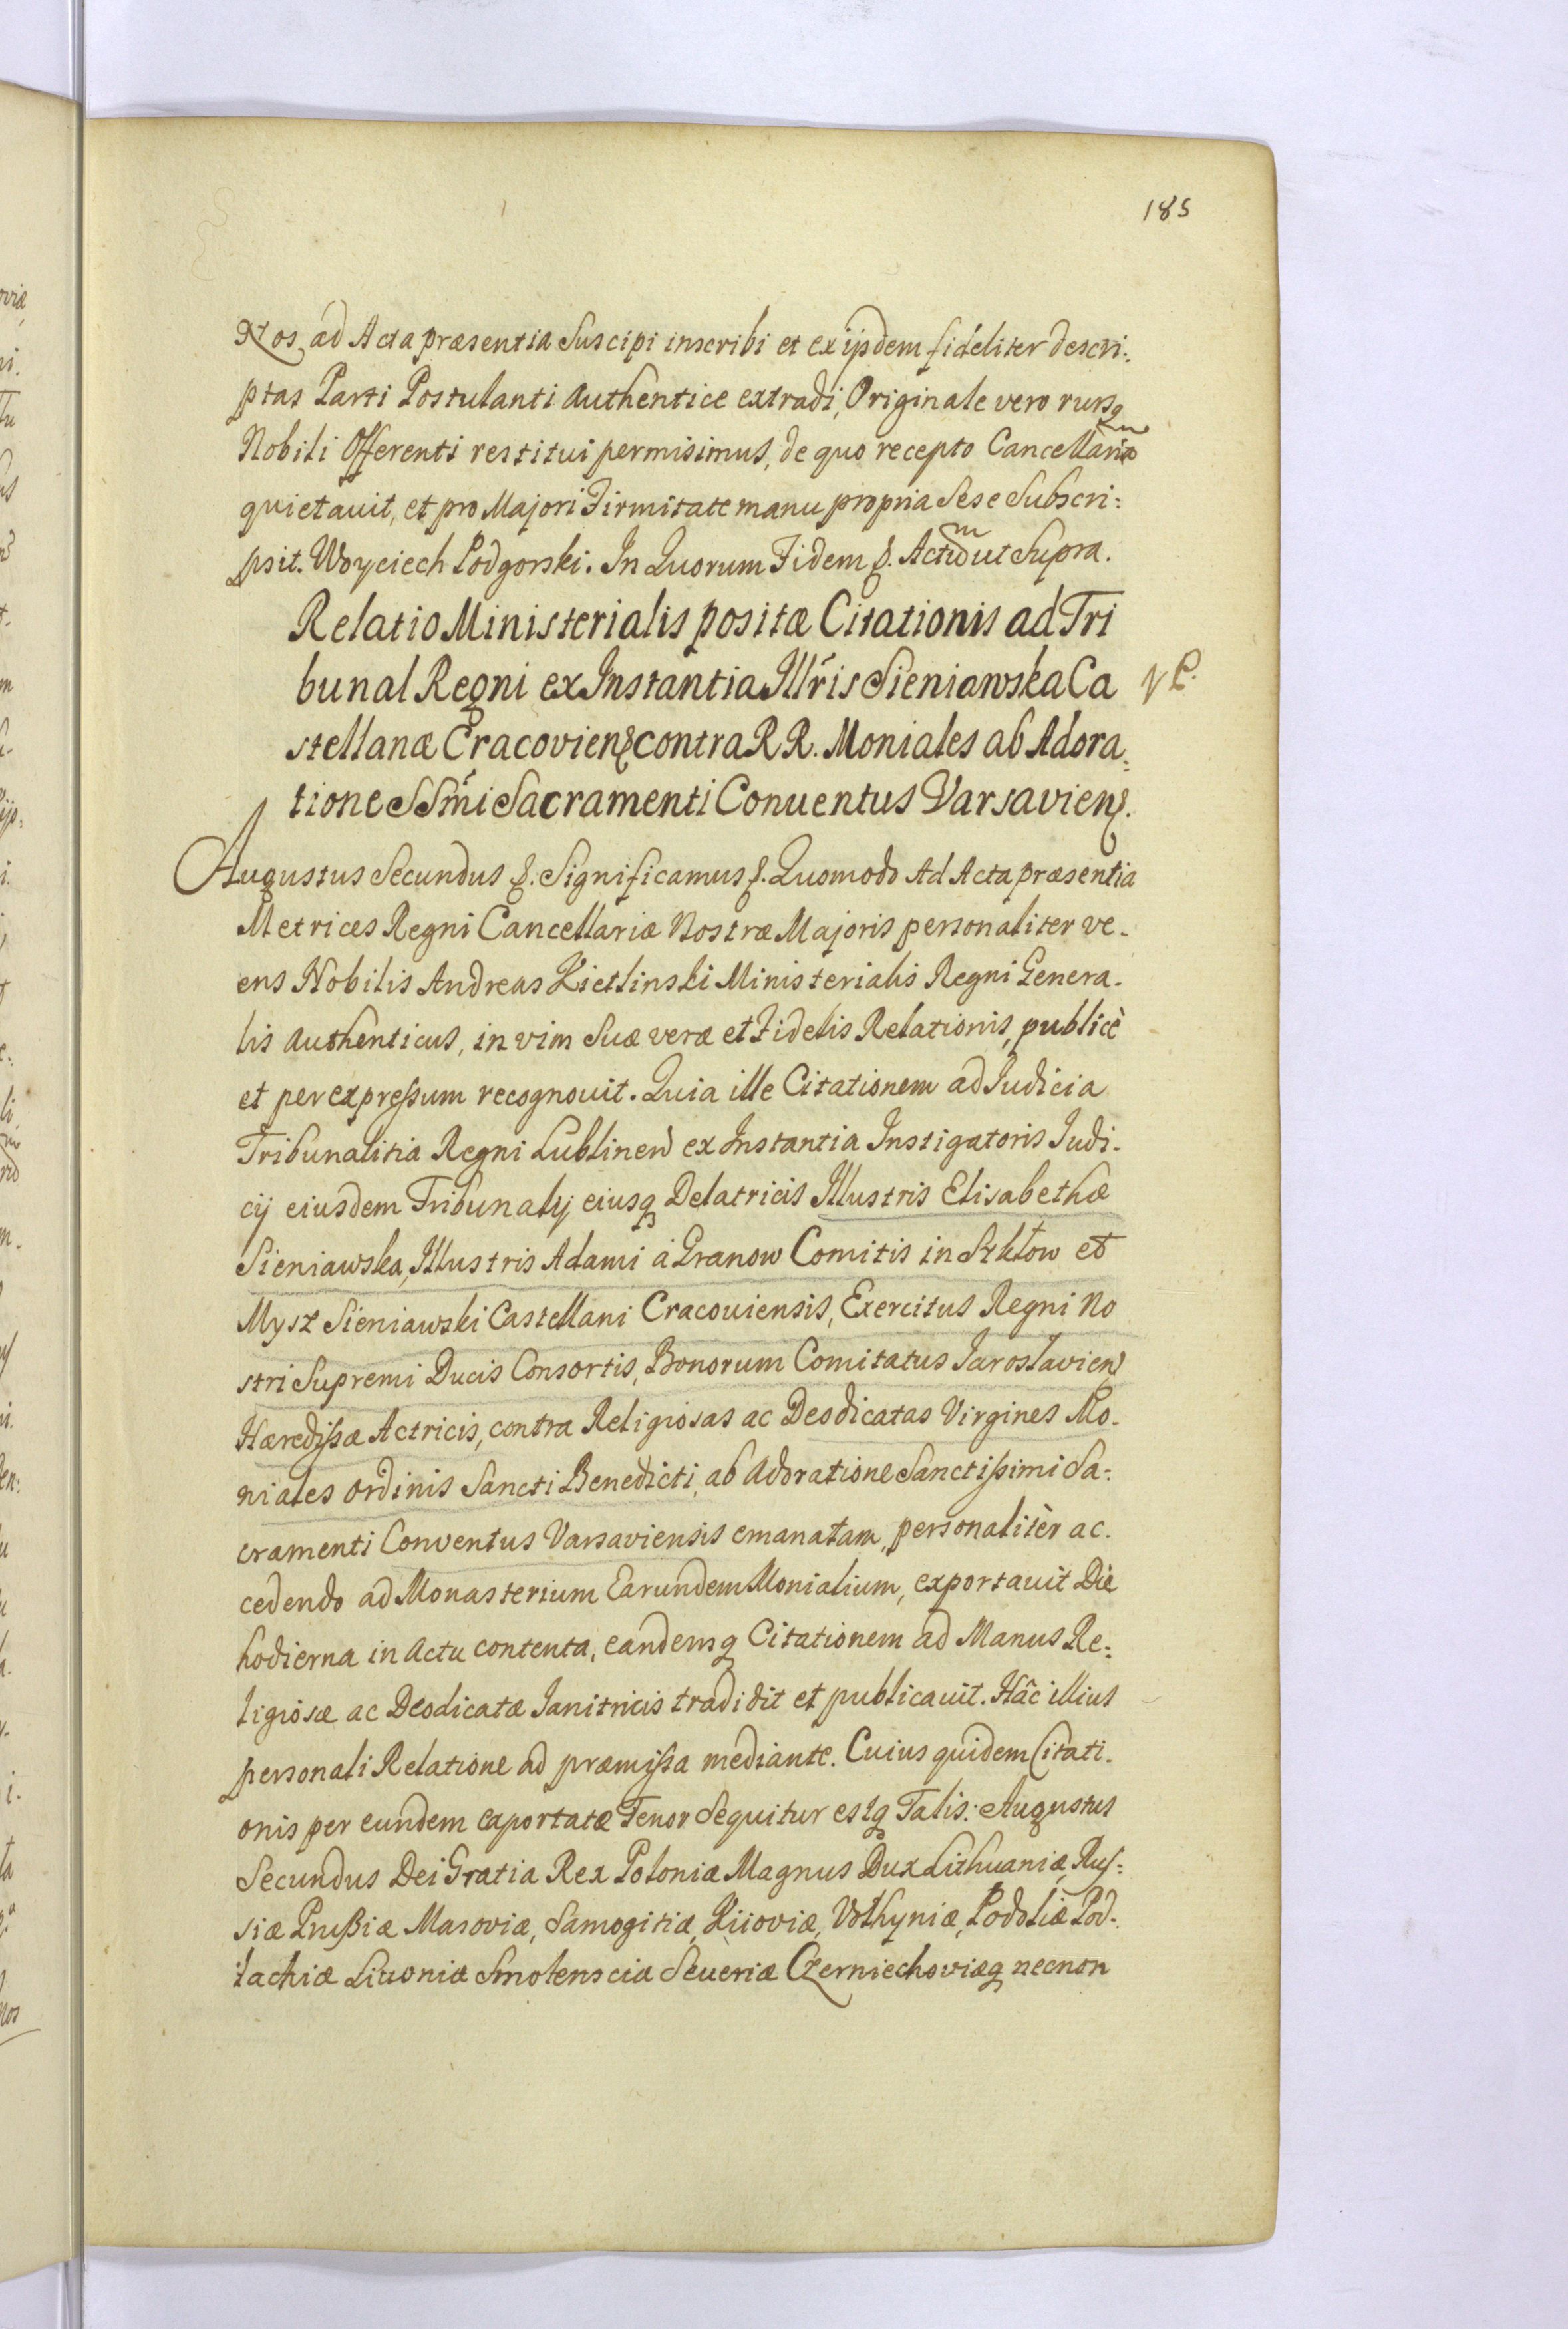 185
Nos, ad Acta præsentia Suscipi inscribi et ex ijsdem fideliter descri:
ptas Parti Postulanti Authentice extradi, Originale vero rursq
Nobili Offerenti restitui permisimus, de quo recepto Cancellariã
quietavit, et pro Majori Firmitate manu propria Sese Subscri:
psit. Woyciech Podgorski. In Quorum Fidem &. Actum ut Supra.
Relatio Ministerialis positæ Citationis ad Tri
bunal Regni ex Instantia Illris Sieniawska Ca
stellanæ Cracovien contra R R. Moniales ab Adora:
tione SSmi Sacramenti Conventus Varsavien.
Augustus Secundus &. Significamus &. Quomodo Ad Acta præsentia
Metrices Regni Cancellariæ Nostræ Majoris personaliter ve-
ens Nobilis Andreas Kietlinski Ministerialis Regni Genera-
lis Authenticus, in vim Suæ veræ et Fidelis Relationis, publicè
et per expressum recognouit. Quia ille Citationem ad Judicia
Tribunalitia Regni Lublinen ex Instantia Instigatoris Judi-
cij eiusdem Tribunalij eiusq Delatricis Illustris Elisabethæ
Sieniawska, Illustris Adami à Granow Comitis in Szkłow et
Mysz Sieniawski Castellani Cracouiensis, Exercitus Regni No
stri Supremi Ducis Consortis, Bonorum Comitatus Jaroslavien
Hæredissæ Actricis, contra Religiosas ac Deodicatas Virgines Mo-
niales ordinis Sancti Benedicti, ab Adoratione Sanctissimi Sa:
cramenti Conventus Varsaviensis emanatam, personalitèr ac-
cedendo ad Monasterium Earundem Monialium, exportauit Die
hodierna in Actu contenta, eandemq Citationem ad Manus Re:
ligiosæ ac Deodicatæ Janitricis tradidit et publicauit. Hâc illius
personali Relatione ad præmissa mediante. Cuius quidem Citati-
onis per eundem exportatæ Tenor Sequitur estq Talis: Augustus
Secundus Dei Gratia Rex Poloniæ Magnus Dux Lithuaniæ, Rus:
siæ Prussiæ Masoviæ, Samogitiæ, Kiioviæ, Volhyniæ, Podoliæ Pod-
lachiæ Liuoniæ Smolenscia Seueriæ Czerniechoviæq necnon